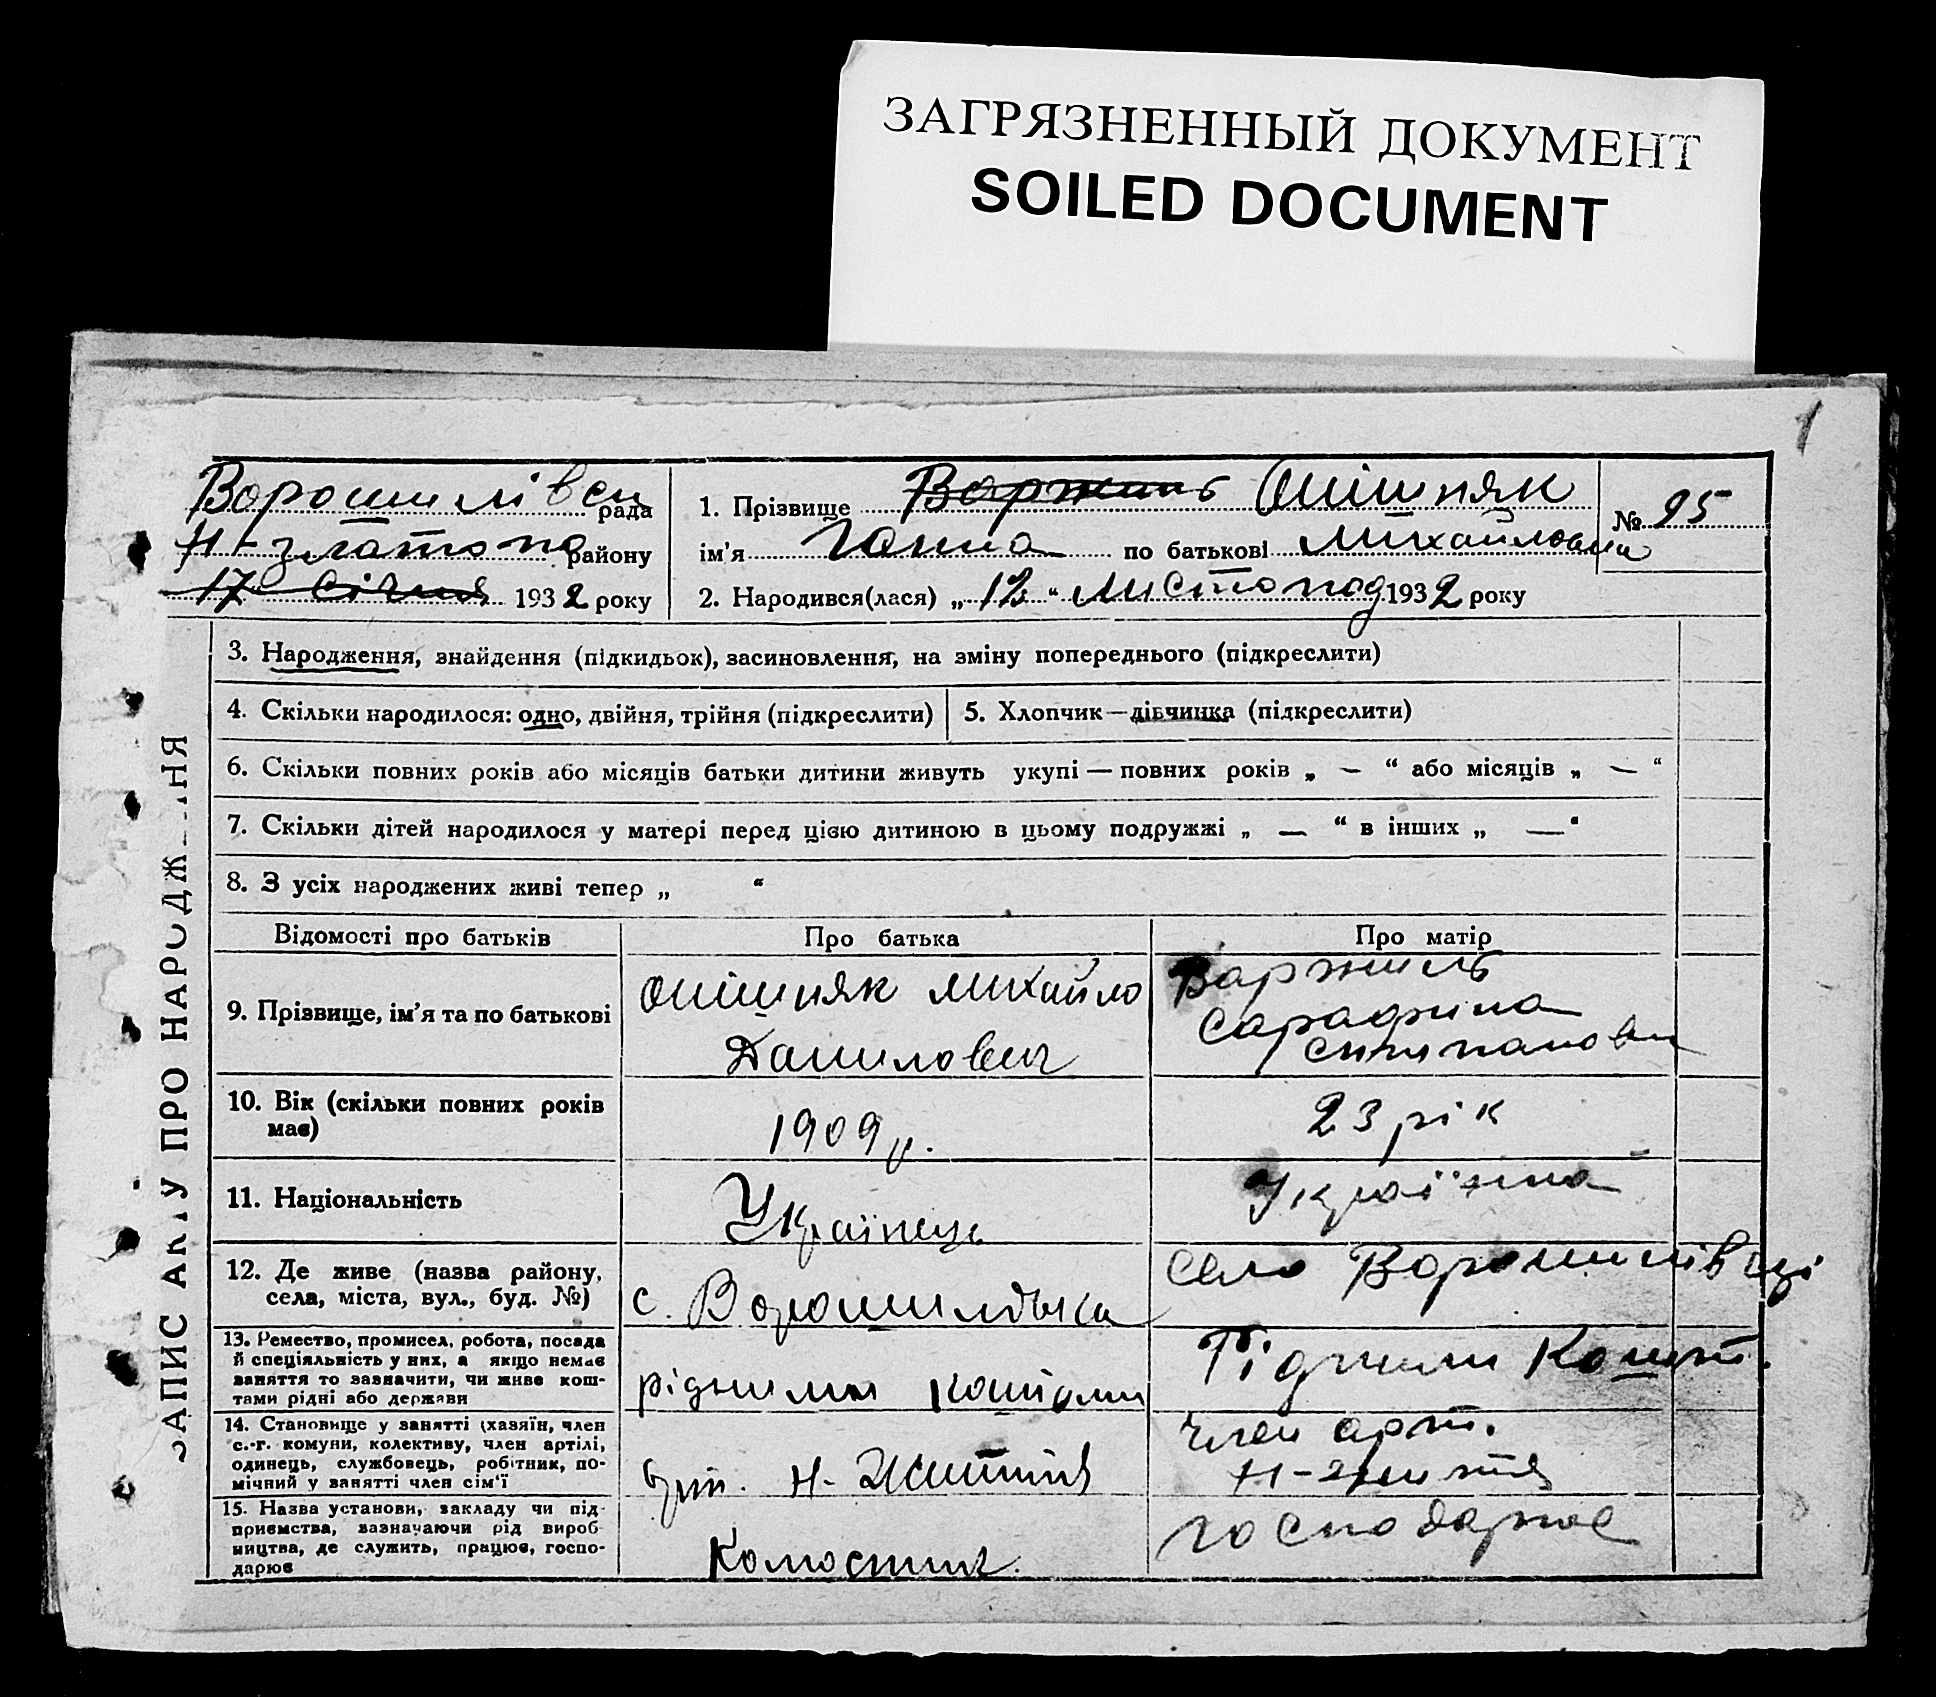 ЗАГРЯЗНЕННЫЙ ДОКУМЕНТ
SOILED DOCUMENT
1
ЗАПИС АКТУ ПРО НАРОДЖ
рада
району
17 січня 1932 року
1. Прізвище Опішняк
№ 95
ім'я Ганна по батькові Михайловна
2. Народився(лася) „12“ Листопад 1932 року
3. Народження, знайдення (підкидьок), засиновлення, на зміну попереднього (підкреслити)
4. Скільки народилося: одно, двійня, трійня (підкреслити)
5. Хлопчик—дівчинка (підкреслити)
6. Скільки повних років або місяців батьки дитини живуть укупі — повних років „ — “ або місяців „ — “
7. Скільки дітей народилося у матері перед цією дитиною в цьому подружжі „ — “ в інших „ — “
8. З усіх народжених живі тепер „ “
Відомості про батьків
Про батька
Про матір
9. Прізвище, ім'я та по батькові
Опішняк Михайло
Данилович
10. Вік (скільки повних років
має)
1909 р.
23 рік
11. Національність
Українець
Українка
12. Де живе (назва району,
села, міста, вул., буд. №)
с.
село
13. Ремество, промисел, робота, посада
й спеціяльність у них, а якщо немає
заняття то зазначити, чи живе кош-
тами рідні або держави
рідними коштами
Рідними кошт.
14. Становище у занятті (хазяїн, член
с.-г. комуни, колективу, член артілі,
одинець, службовець, робітник, по-
мічний у занятті член сім'ї
Н-Життя
член арт.
Н-життя
15. Назва установи, закладу чи під-
приємства, зазначаючи рід вироб-
ництва, де служить, працює, госпо-
дарює